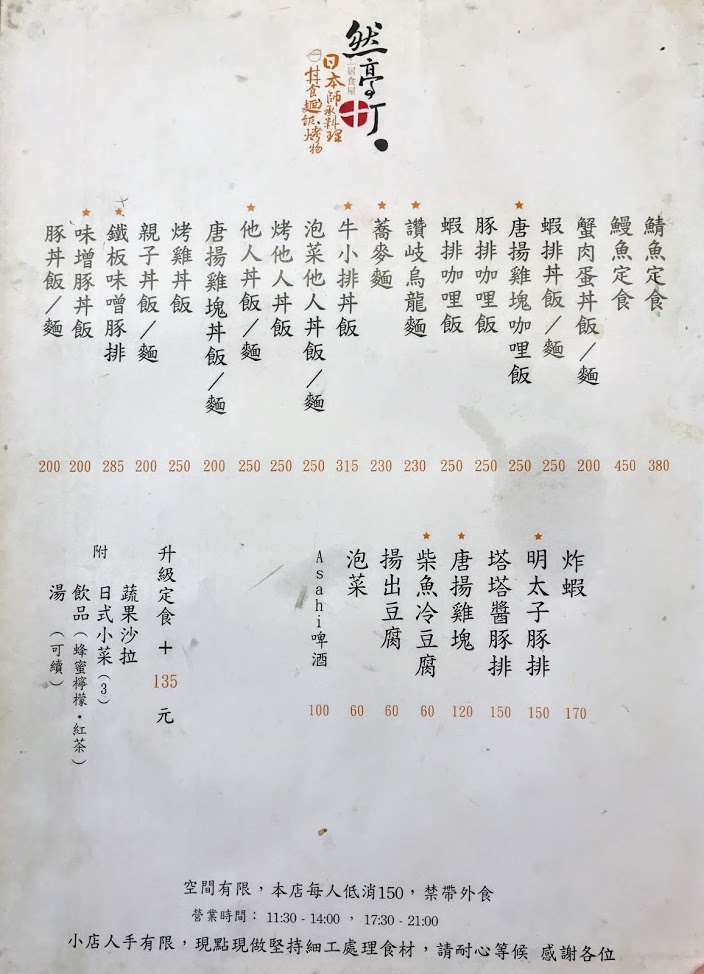 然亭町
居食屋
日本師承料理
丼食麵飯、烤物
鯖魚定食 380
鰻魚定食 450
蟹肉蛋丼飯/麵 200
蝦排丼飯/麵 250
★唐揚雞塊咖哩飯 250
豚排咖哩飯 250
蝦排咖哩飯 250
★讚岐烏龍麵 230
★蕎麥麵 230
★牛小排丼飯 315
泡菜他人丼飯/麵 250
烤他人丼飯 250
★他人丼飯/麵 250
唐揚雞塊丼飯/麵 200
烤雞丼飯 250
親子丼飯/麵 200
★鐵板味噌豚排 285
★味增豚丼飯 200
豚丼飯/麵 200
炸蝦 170
★明太子豚排 150
塔塔醬豚排 150
★唐揚雞塊 120
★柴魚冷豆腐 60
揚出豆腐 60
泡菜 60
Asahi啤酒 100
升級定食+135元
蔬果沙拉
附 日式小菜(3)
飲品(蜂蜜檸檬・紅茶)
湯(可續)
空間有限,本店每人低消150,禁帶外食
營業時間: 11:30 - 14:00 , 17:30 - 21:00
小店人手有限,現點現做堅持細工處理食材,請耐心等候 感謝各位